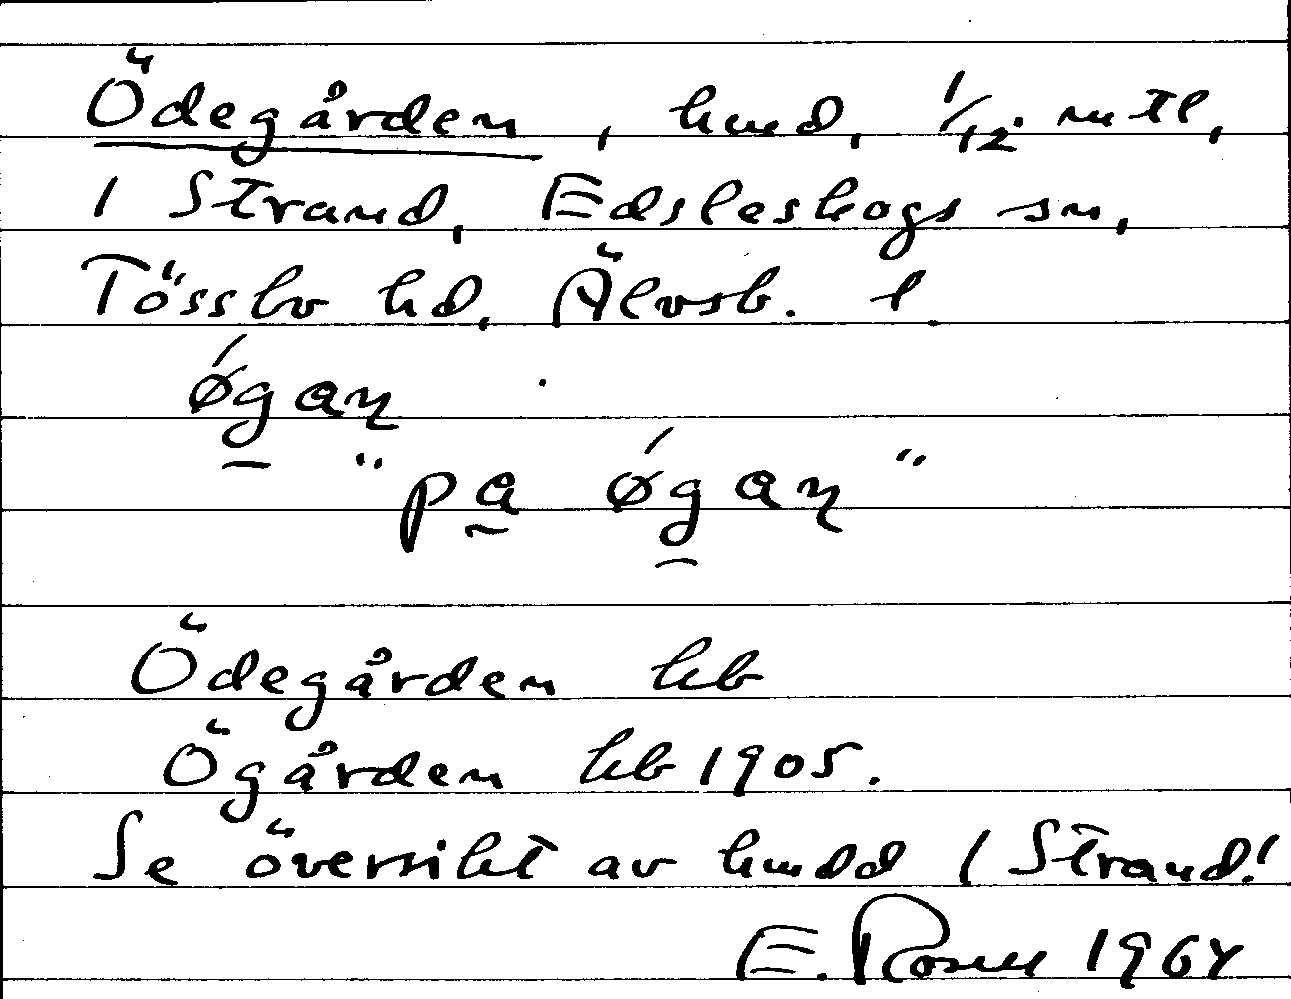 Ödegården, hmd, 1/12 mtl,
i Strand, Edsleskogs sn,
Tössbo hd, Älvsb. l.
ǿgaɳ
"pa ǿgaɳ"
Ödegården hb
Ögården hb 1905.
Se översikt av hmdd i Strand!
E. Rosell 1964